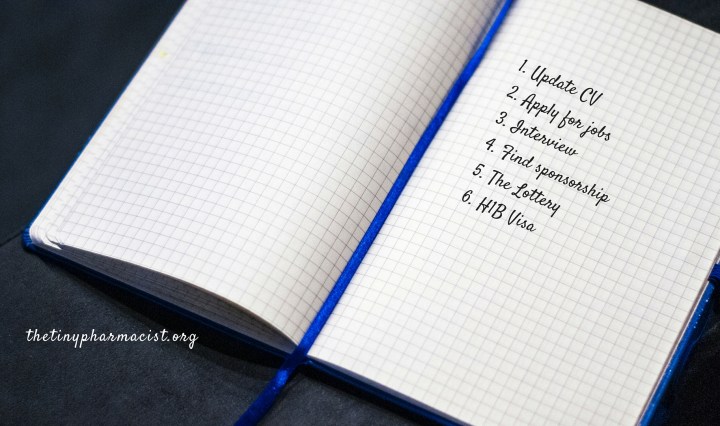 1. Update CV
2. Apply for jobs
3. Interview
4. Find sponsorship
5. The Lottery
6. H1B Visa
thetinypharmacist.org